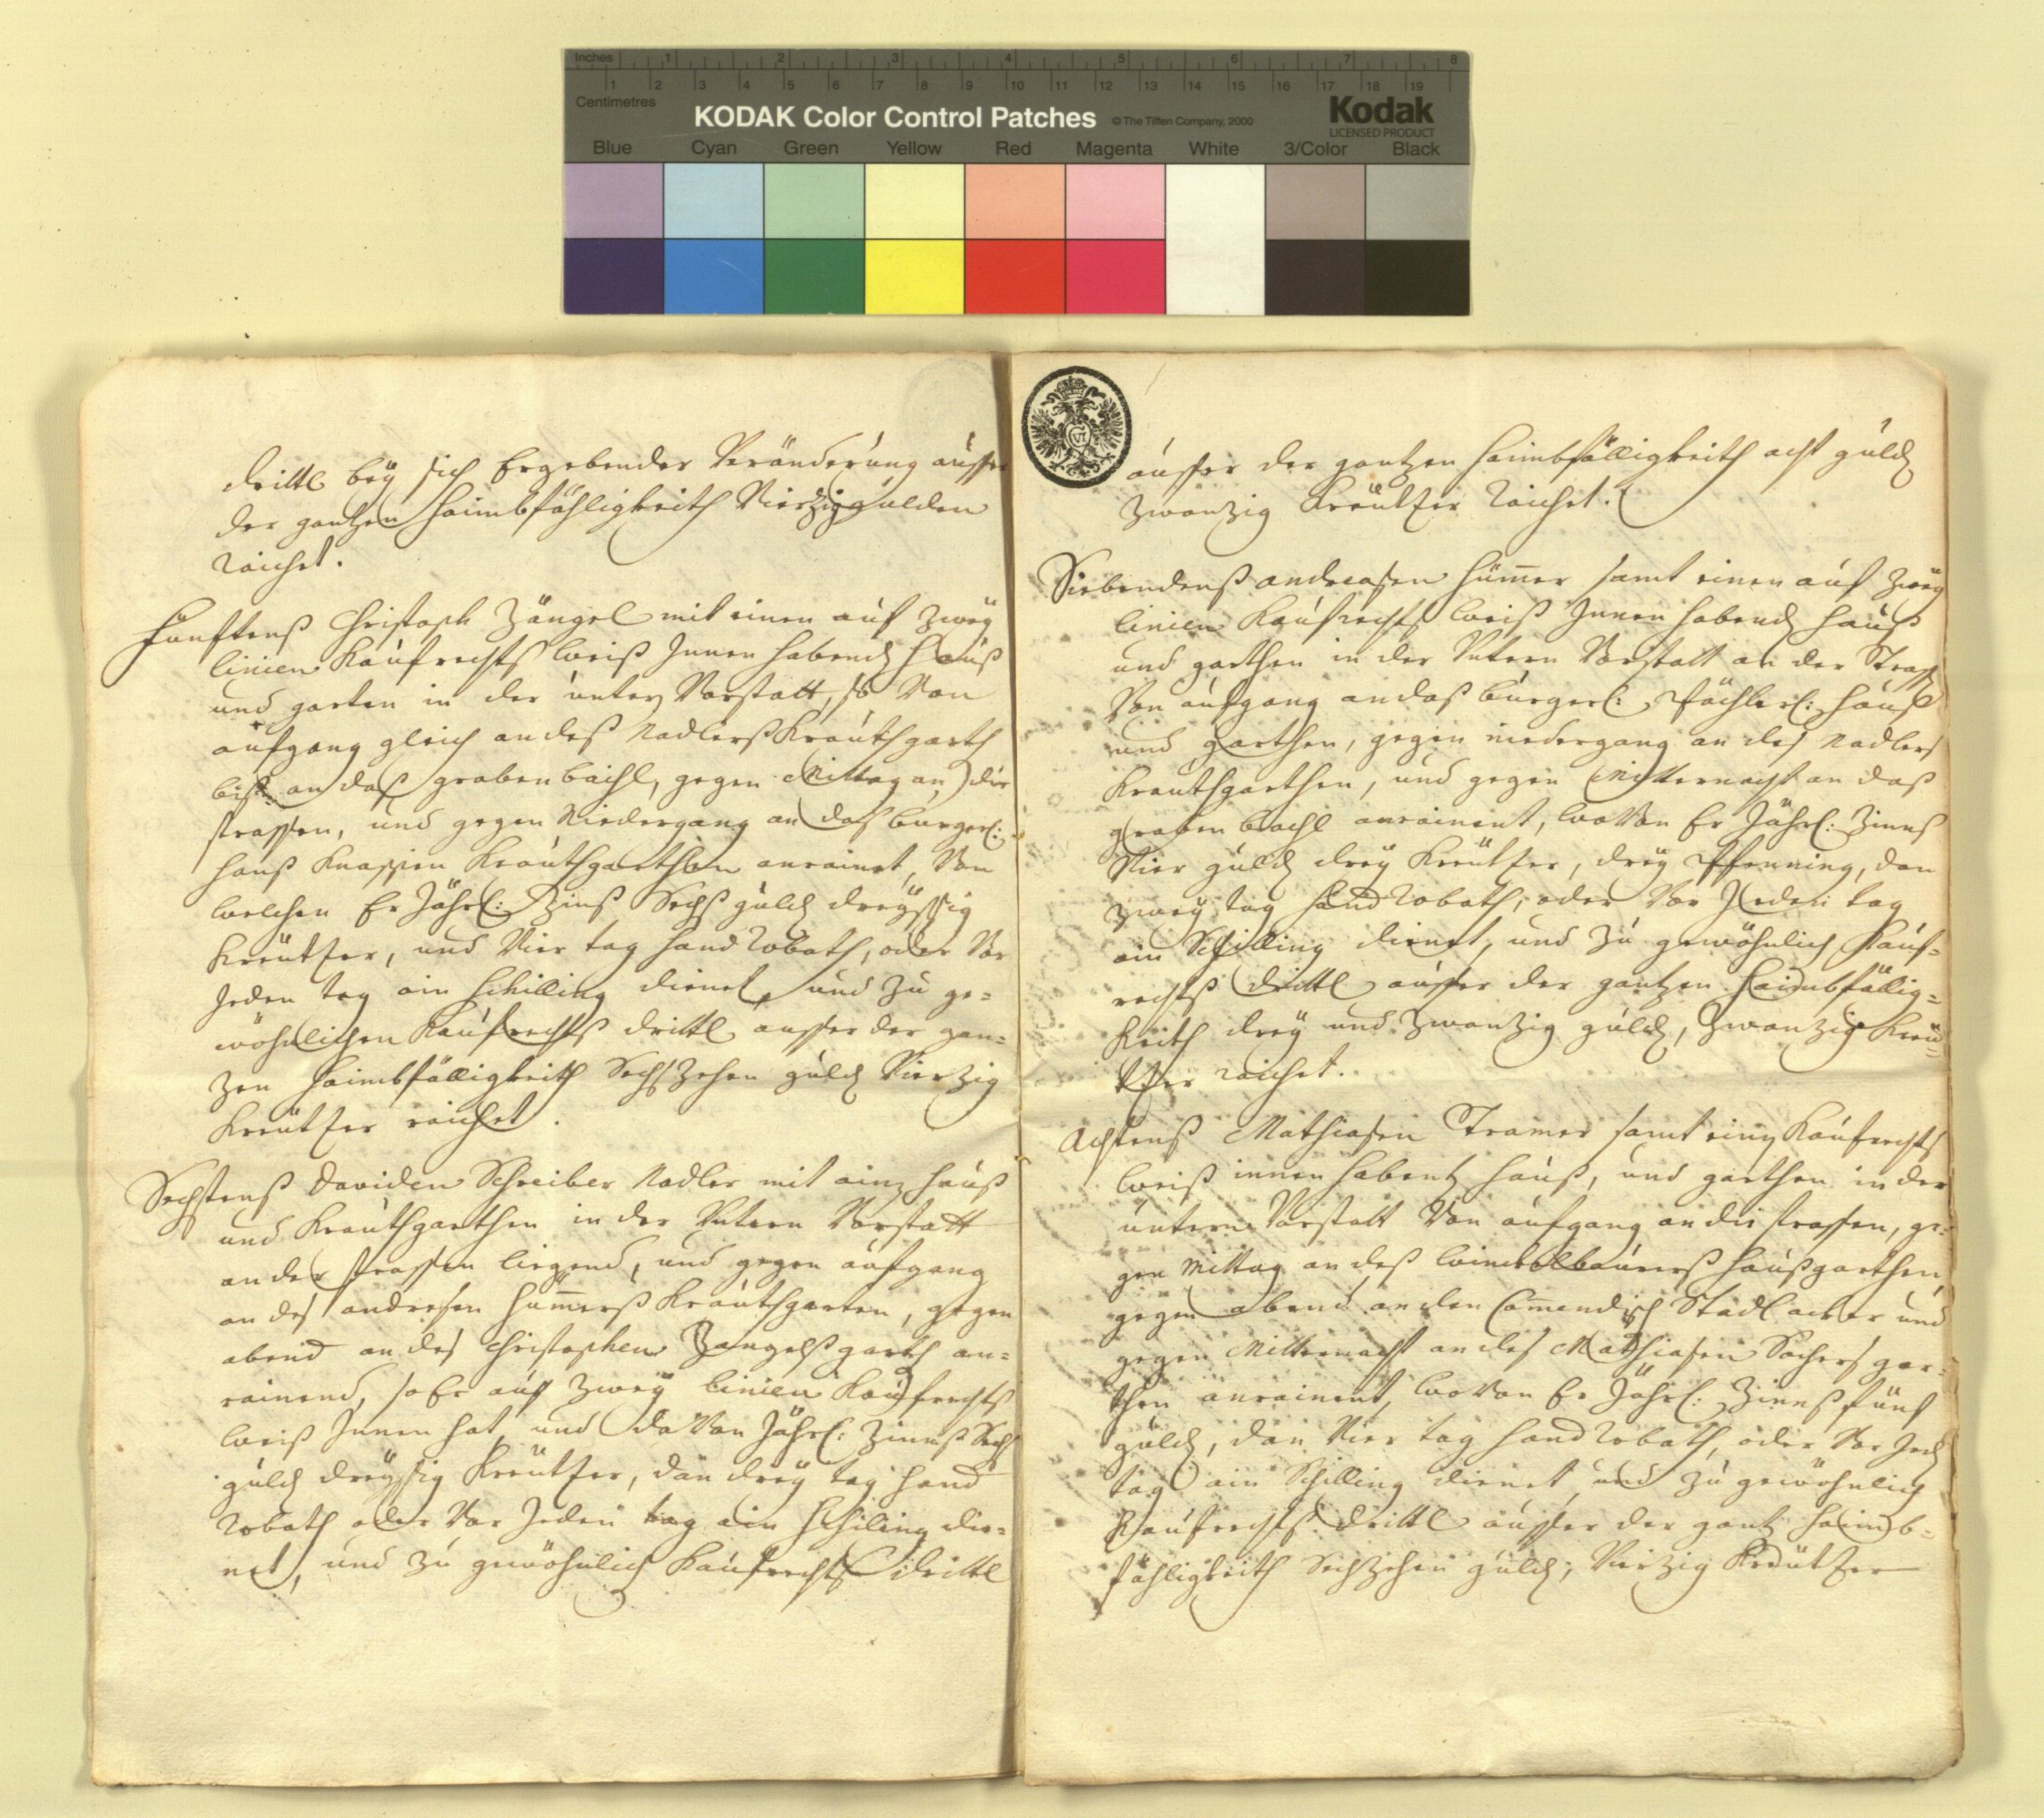 Inches 1 2 3 4 5 6 7 8
1 2 3 4 5 6 7 8 9 10 11 12 13 14 15 16 17 18 19
Centimetres
KODAK Color Control Patches © The Tiffen Company, 2000 Kodak
LICENSED PRODUCT
Blue Cyan Green Yellow Red Magenta White 3/Color Black
drittl beÿ sich Ergebender Veränderung ausser
der gantzen Haimbfähligkeith Vierzig gulden
raichet.
Fünftenß Christoph Zängel mit einen auf zweÿ
linien Kaufrechts weiß Innen habend Hauß
und garten in der untern Vorstatt, so Von
aufgang gleich an deß Nadlerß Krauthgarth
biß an daß grabenbächl, gegen Mittag an die
strassen, und gegen Niedergang an das burgerl:
Hauß Krauthgarthen anrainet, Von
welchen Er Jährl: Zinß Sechß guld dreÿssig
Kreützer, und Vier tag Hand Robath, oder Vor
Jeden tag ain Schilling dienet, und zu ge=
wöhnlichen Kaufrechtß drittl ausser der gan=
zen Haimbfälligkeith Sechszehen guld Vierzig
Kreützer raichet.
Sechstenß Daviden Schreiber Nadler mit ainz Hauß
und Krauthgarthen in der Untern Vorstatt
an der strassen liegend, und gegen aufgang
an des andresen Hum̅erß Krauthgarten, gegen
abend an des Christophen Zangelß garth an=
rainend, so Er auf zweÿ linien Kaufrechts
weiß Innen hat, und da Von Jährl: Zinnß Sechs
guld dreÿssig Kreützer, dan dreÿ tag Hand
Robath oder Vor Jeden tag ain Schiling die=
net, und zu gewöhnlich Kaufrechts drittl
VI
ausser der gantzen Haimbfälligkeith acht guld
zwanzig Kreützer raichet.
Siebendenß andreasen Hum̅er samt einen auf zweÿ
linien Kaufrechts weiß Innen habend Hauß
und garthen in der Untern Vorstatt an der Straß
Von aufgang an daß burgerl: Hauß
und garthen, gegen niedergang an des Nadlers
Krauthgarthen, und gegen Mitternacht an daß
graben bachl anrainent, wo Von Er Jährl: Zinnß
Vier guld dreÿ Kreützer, dreÿ Pfenning, dan
zweÿ tag Hand Robath, oder Vor Jeden tag
ain Schilling dienet, und zu gewöhnlich Kauf=
rechtß drittl ausser der gantzen Haimbfällig=
keith dreÿ und zwanzig guld, zwanzig Kreü=
tzer raichet.
Achtenß Mathiasen Tramer samt einz Kaufrechts
weiß innen habent Hauß, und garthen in der
untern Vorstatt Von aufgang an die strassen, ge=
gen Mittag an deß Haußgarthen,
gegen abend an den Com̅endisch Stadl acker und
gegen Mitternacht an des Mathiasen Sachers gar=
then anrainent, wo Von Er Jährl: Zinnß fünf
guld, dan Vier tag Hand Robath, oder Vor Jed
tag ain Schilling dienet, und zu gewöhnlich
Kaufrechts drittl ausser der gantz Haimb=
fähligkeith Sechzehen guld, Vierzig Kreützer